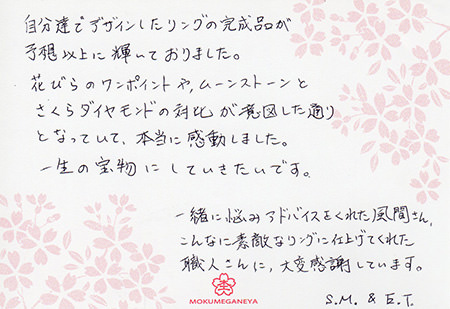 自分達でデザインしたリングの完成品が
予想以上に輝いておりました。
花びらのワンポイントや、ムーンストーンと
さくらダイヤモンドの対比が意図した通り
となっていて、本当に感動しました。
一生の宝物にしていきたいです。
一緒に悩みアドバイスをくれた風間さん、
こんなに素敵なリングに仕上げてくれた
職人さんに、大変感謝しています。
MOKUMEGANEYA
S.M. & E.T.